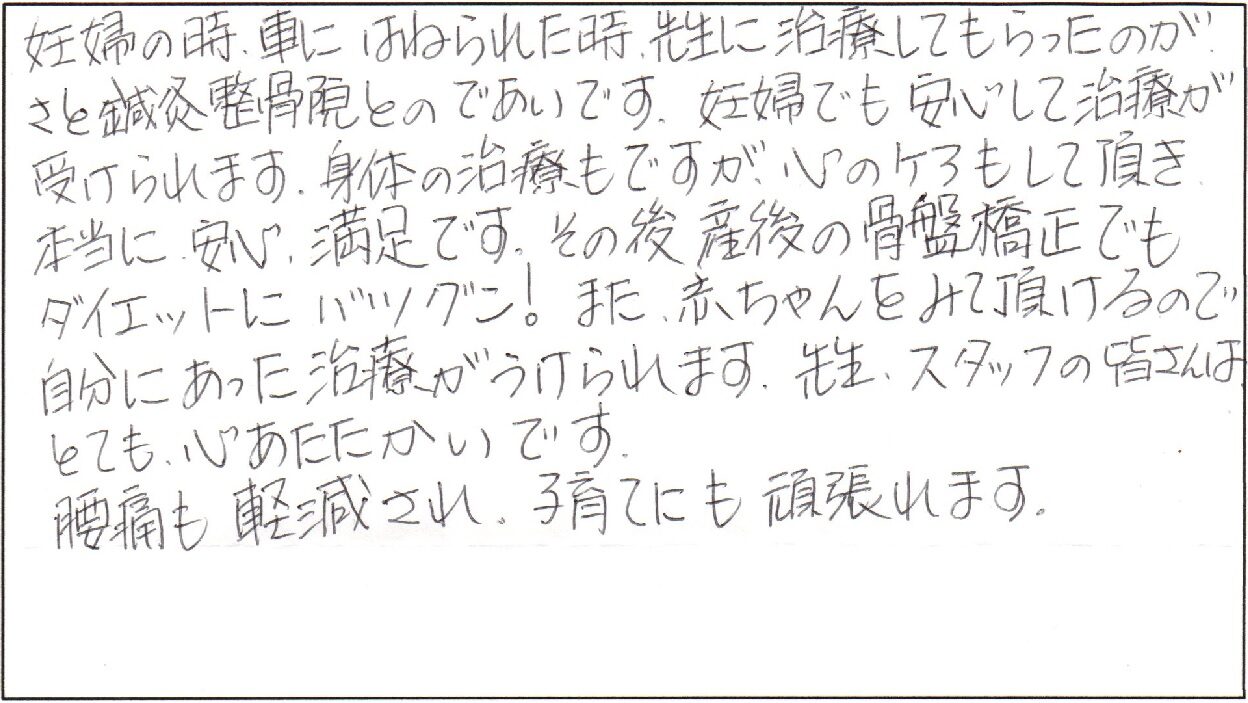 妊婦の時、車に はねられた時、先生に 治療してもらったのが、
さと鍼灸整骨院とのであいです。妊婦でも 安心して治療が
受けられます。身体の治療もですが、心のケアもして頂き、
本当に、安心、満足です。その後 産後の骨盤橋正でも
ダイエットに バツグン! また、赤ちゃんをみて頂けるので
自分にあった治療がうけられます。先生、スタッフの皆さんは、
とても、心あたたかいです。
腰痛も 軽減され、子育てにも 頑張れます。